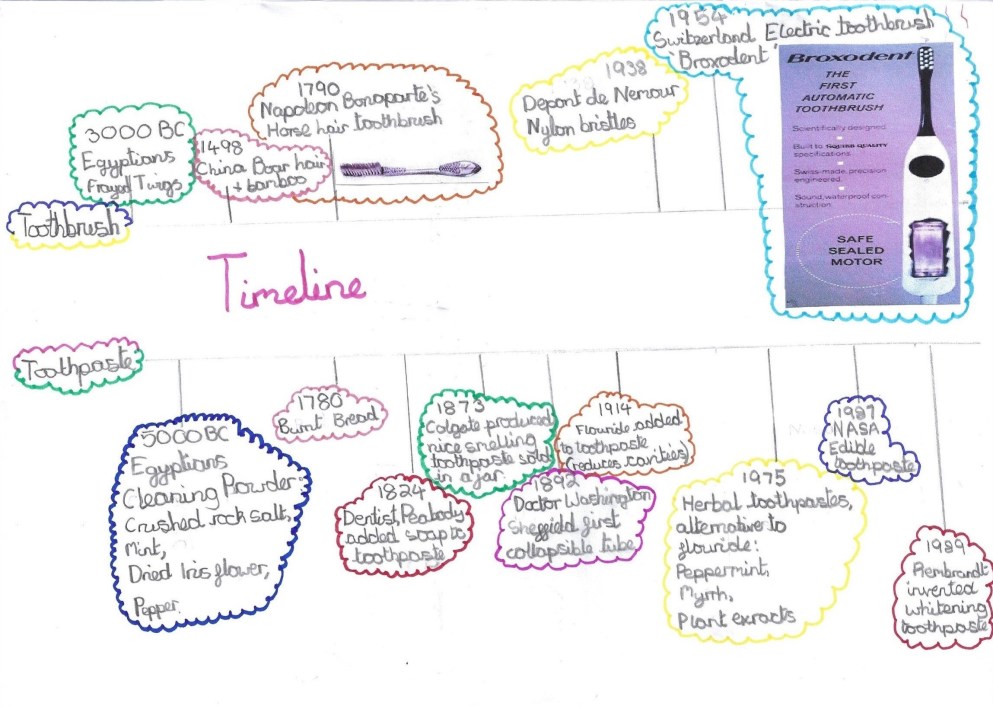 Toothbrush
3000 BC
Egyptians
Frayed Twigs
1498
China Boar hair
+ bamboo
1790
Napoleon Bonaparte's
Horse hair toothbrush
1938
Depont de Nemour
Nylon bristles
1954
Switzerland Electric toothbrush
'Broxodent'
Broxodent
THE
FIRST
AUTOMATIC
TOOTHBRUSH
Scientifically designed
Built to SQUIBB QUALITY
specifications
Swiss-made, precision
engineered
Sound, waterproof con-
struction
SAFE
SEALED
MOTOR
Timeline
Toothpaste
5000 BC
Egyptians
Cleaning Powder:
Crushed rock salts,
Mint,
Dried Iris flower,
Pepper.
1780
Burnt Bread
1824
Dentist, Peabody
added soap to
toothpaste
1873
Colgate produced
nice smelling
toothpaste sold
in a jar.
1892
Doctor Washington
Sheffield first
collapsible tube
1914
Flouride added
to toothpaste
(reduces cavities)
1975
Herbal toothpastes,
alternative to
flouride:
Peppermint,
Myrrh,
Plant exracts
1987
NASA
Edible
toothpaste
1989
Rembrandt
invented
whitening
toothpaste